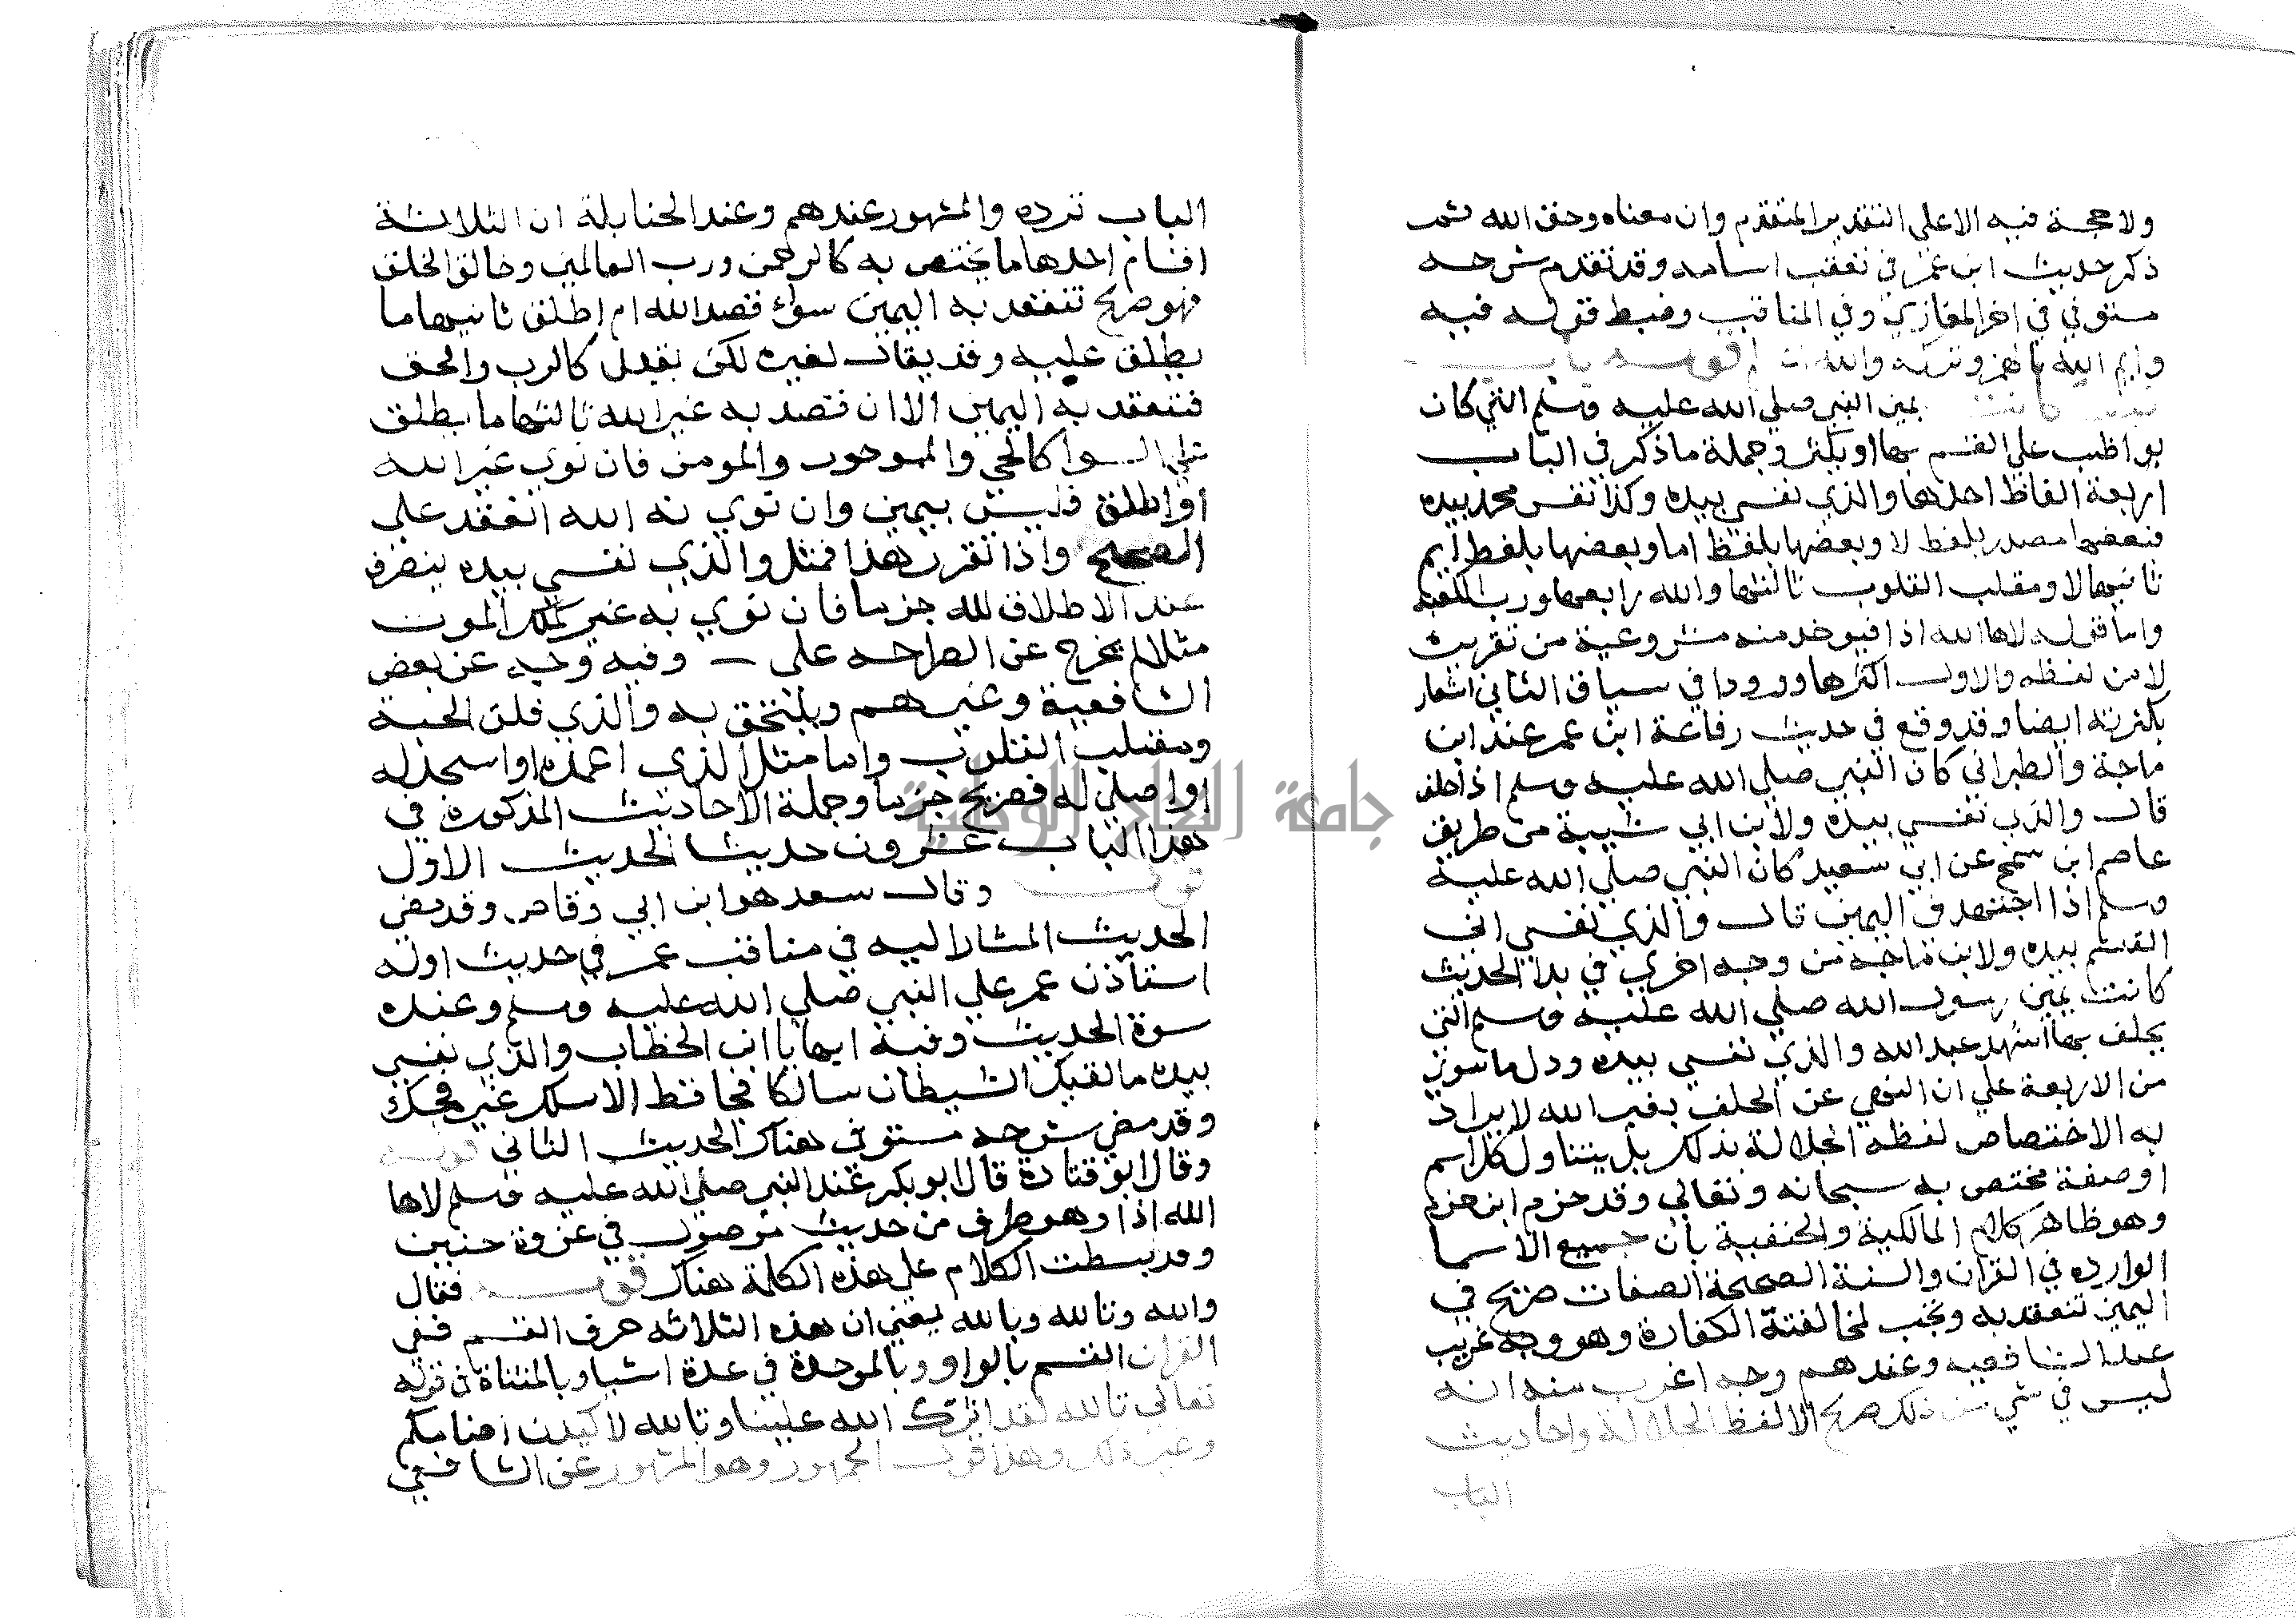 ولا حجة فيه الا على التقدير المتقدم وان معناه وحق الله ثم
ذكر حديث ابن عمر في تعقب اسامه وقد تقدم شرحه
مستوفي في اخر المغازي وفي المناقب وضبط قوله فيه
وايم الله بالهمز وتركه والله اعلم قوله باب
كيف كانت يمين النبي صلي الله عليه وسلم التي كان
يواظب علي القسم بها او يكثر وجملة ما ذكر في الباب
اربعة الفاظ احدها والذي نفسي بيده وكذا نفس محمد بيده
فبعضها مصدر بلفظ لا وبعضها بلفظ اما وبعضها بلفظ ايم
ثانيها لا ومقلب القلوب ثالثها والله رابعها ورب الكعبة
واما قوله لاها الله اذا فيوخذ منه مشروعية من تقريره
لا من لفظه والاول اكثرها ورودا في سياق الثاني اشعار
بكثرته ايضا وقد وقع في حديث رفاعة ابن عمر عند ابن
ماجة والطبراني كان النبي صلي الله عليه وسلم اذا حلف
قال والذي نفسي بيده ولابن ابي شيبة من طريق
عاصم ابن سمح عن ابي سعيد كان النبي صلي الله عليه
وسلم اذا اجتهد في اليمين قال والذي نفسي ابي
القسم بيده ولابن ماجه من وجه اخر في بدا الحديث
كانت يمين رسول الله صلي الله عليه وسلم التي
يحلف بها اشهد عبد الله والذي نفسي بيده ودل ما سوي
من الاربعة علي ان النهي عن الحلف بغير الله لا يراد
به الاختصاص لفظه الجلالة بذلك بل يتناول كل اسم
اوصفة مختص به سبحانه وتعالي وقد جزم ابن حزم
وهو ظاهر كلام المالكية والحنفية بان جميع الاسما
الوارده في القران والسنة الصحيحة الصفات صريح في
اليمين تنعقد به وتجب لمخالفتة الكفارة وهو وجه غريب
عند الشافعيه وعندهم وجه اغرب منه انه
ليس في شي من ذلك صريح الا لفظ الجلالة واحاديث
الباب
الباب ترده والمشهور عندهم وعند الحنابلة ان الثلاثة
اقسام احدها ما يختص به كالرحمن ورب العالمين وخالق الخلق
فهو صريح تنعقد به اليمين سواء قصد الله ام اطلق ثانيها ما
يطلق عليه وقد يقال لغيره لكن بقيد كالرب والحق
فتنعقد به اليمين الا ان قصد به غير الله ثالثها ما يطلق
على السوا كالحي والموجود والمومن فان نوي غير الله
او اطلق فليس بيمين وان نوي به الله انعقد على
الصحيح واذا تقرر هذا فمثل والذي نفسي بيده ينصرف
عند الاطلاق لله جزما فان نوي به غيره كملك الموت
مثلا لم يخرج عن الصراحه على وفيه وجه عن بعض
الشافعية وغيرهم ويلتحق به والذي فلق الحبة
ومقلب القلوب واما مثل الذي اعبده او اسجد له
او اصلي له فصريح جزما وجملة الاحاديث المذكورة في
هذا الباب عشرون حديثا الحديث الاول
قوله وقال سعد هو ابن ابي وقاص وقد مضي
الحديث المشار اليه في مناقب عمر في حديث اوله
استاذن عمر علي النبي صلي الله عليه وسلم وعنده
سوة الحديث وفيه ايها يا ابن الخطاب والذي نفسي
بيده ما لقيك الشيطان سالكا فجا قط الا سلك غير فجك
وقد مضي شرحه مستوفي هناك الحديث الثاني قوله
وقال ابو قتادة قال ابو بكر عند النبي صلي الله عليه وسلم لاها
الله اذا وهو طرف من حديث موصول في غزوة حنين
وقد بسطت الكلام علي هذه الكلمة هناك قوله فقال
والله وتالله وبالله يعني ان هذه الثلاثه حرف القسم ففي
القران القسم بالواو وبالموحدة في عدة اشيا وبالمثناة في قوله
تعالى تالله لقد اثرك الله علينا وتالله لاكيدن اصنامكم
وغير ذلك وهذا قول الجمهور وهو المشهور عن الشافعي